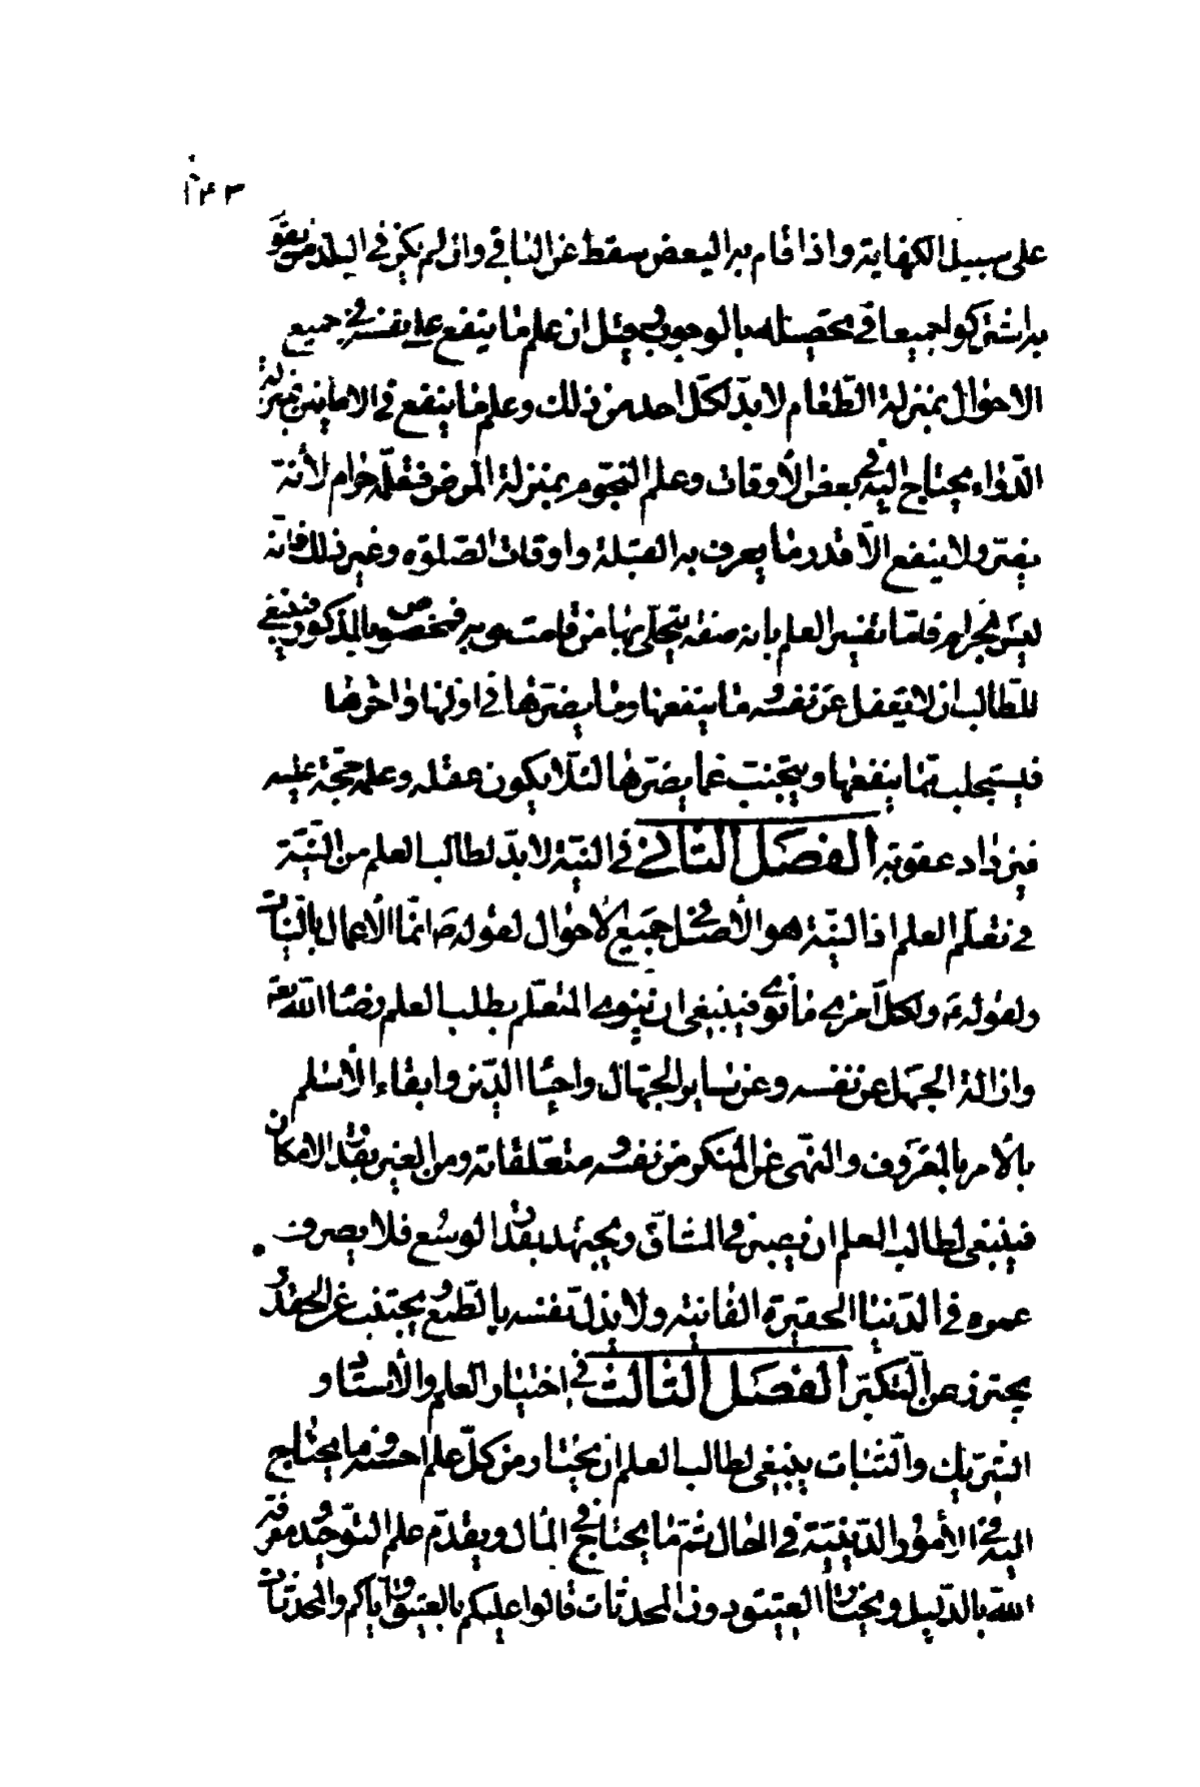 ١٠٤٣
على سبيل الكفاية واذا قام به البعض سقط عن الباقي وان لم يكن في البلد من يقوم
به اشتركوا جميعا في تحصيله بالوجوب قيل ان علم ما ينفع على نفسه في جميع
الاحوال بمنزلة الطّعام لا بدّ لكلّ احد من ذلك وعلم ما ينفع في الاحايين بمنزلة
الدّواء يحتاج اليه في بعض الأوقات وعلم النّجوم بمنزلة المرض فتعلّمه حرام لأنّه
يضرّ ولا ينفع الاّ قدر ما يعرف به القبلة واوقات الصّلوة وغير ذلك فانّه
ليس بحرام فامّا تفسير العلم بانه صفة يتجلّى بها من قامت هو به فينبغي
للطّالب ان لا يغفل عن نفسه ما ينفعها وما يضرّها في اولها واخرها
فليستجلب بما ينفعها ويتجنّب عما يضرّها لئلّا يكون عقله وعلمه حجّة عليه
فيزداد عقوبة الفصل الثاني في النيّة لا بدّ لطالب العلم من النّيّة
في تعلّم العلم اذ النيّة هو الأصل في جميع الأحوال لقوله ص انّما الأعمال بالنّيّات
ولقوله ص ولكلّ امرء ما نوى فينبغي ان ينوي المتعلّم بطلب العلم رضا اللّه تع
وازالة الجهل عن نفسه وعن ساير الجهّال واحياء الدّين وابقاء الأسلم
بالأمر بالمعروف والنّهى عن المنكر من نفسه ومتعلّقاته ومن الغير بقدر الامكان
فينبغى لطالب العلم ان يصبر في المشاقّ ويجتهد بقدر الوسع فلا يصرف
عمره في الدّنيا الحقيرة الفانية ولا يذلّ نفسه بالطّمع ويجتنب عن الحقد و
يحترز عن التّكبّر الفصل الثالث في اختيار العلم والأستاد و
الشّريك والثّبات ينبغى لطالب العلم ان يختار من كلّ علم احسنه وما يحتاج
اليه في الأمور الدّينيّة في الحال ثمّ ما يحتاج في المال ويقدّم علم التّوحيد ومعرفة
اللّه بالدّليل ويختار العتيق دون المحدثات قالوا عليكم بالعتيق وايّاكم والمحدثات